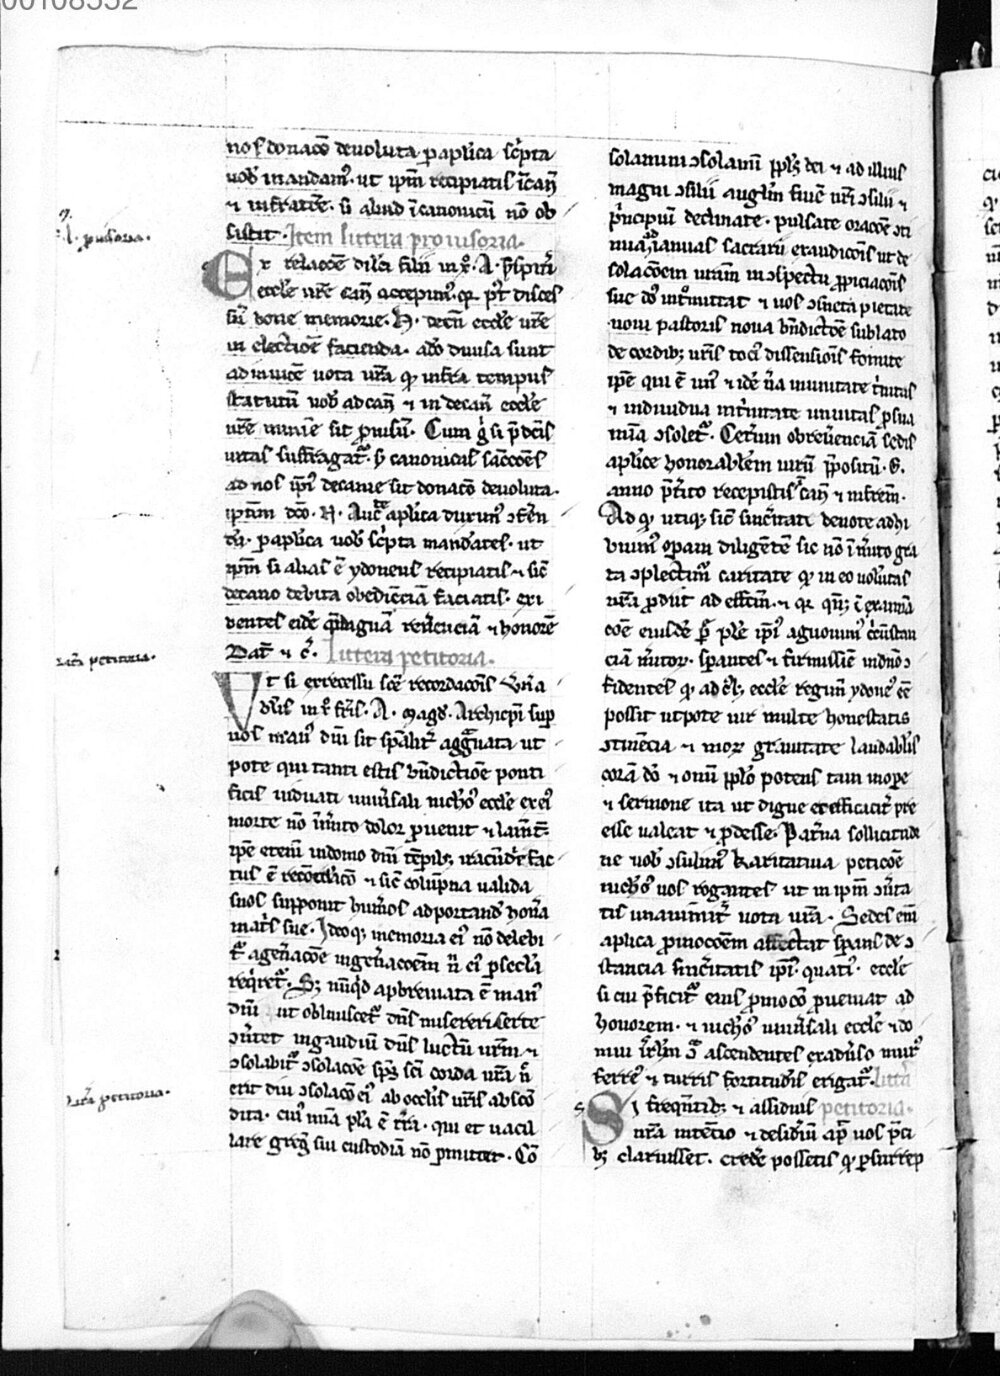 00108552
nos donacō deuoluta p aplica sc̄pta
uob̄ mandam⁹. ut ip̄m recipiatis ī can̄
⁊ in fratrē. si aliud ī canonicū nō ob
sistit. Item littera prouisoria.
Ex relacōe dilc̄i filii in xp̄. A. p̄sbit̄i
eccl̄e ur̄e can̄ accepim⁹. qd̄ p⁹t disces
sū bone memorie. H. decan̄ eccl̄e ur̄e
in electiōe facienda. adō diuisa sunt
ad inuicē uota ur̄a qd̄ infra tempus
statutū uob̄ ad can̄ ⁊ in decan̄ eccl̄e
ur̄e minīe sit prouisū. Cum g̊ si p̄dc̄is
ueritas suffragat̄. s̄ canonicas sancc̄oes
ad nos ip̄i⁹ decanie sit donacō deuoluta.
ip̄am dc̄o. H. Auct̄e aplica duxim⁹ ɔferen
dā. p aplica uob̄ sc̄pta mandātes. ut
ip̄m si alias ē ydoneus recipiatis ⁊ sic̄
decano debita obediēciā faciatis. exi
bentes eidē reuēnciā ⁊ honorē
Dat̄ ⁊ c̄. Littera petitoria.
Ut si ex recessu sc̄e recordacōis
d̄ni in xp̄ fr̄is. A. magd̄. Archiep̄i sup
uos man⁹ dn̄i sit sp̄alit̄ aggūata ut
pote qui tanti estis bn̄dictiōe ponti
ficis uiduati uniūsali nichō⁹ eccl̄e ex ei⁹
morte nō in̄mito dolor puenit ⁊ lamt̄.
ip̄e etenī in domo dn̄i
tus ē reconciliacō ⁊ sic̄ colūpna ualida
suos supponit humōs ad portand̄ hon̄a
mat̄s sue. Ideoq; memoria ei⁹ nō delebi
t̄ a gen̄acōe in gen̄acōem n̄ ei⁹ p secl̄a
req̄ret̄. S; nūq̄d abbreuiata ē man⁹
dn̄i ut obliuiscet̄ dn̄s misereri certe
ɔūtet in gaudiū dn̄s luctū ur̄m ⁊
ɔsolabit̄ ɔsolacōe sp̄s sc̄i corda ur̄a n̄
erit diu ɔsolacō ei⁹ ab oclis ur̄is abscō
dita. cui⁹ mīa plā ē t̄ra. qui et uacil
lare gregē sui custodiā nō pmittet. Cō
solamini ɔsolamī ppl̄s dei ⁊ ad illius
magni ɔsilii angl̄m siue ur̄i ɔsilii ⁊
p̄ncipiū declinate. pulsate oracōe ɔti
nua ianuas sacrarii exaudicōis ut de
solacōem ur̄am in ɔspectu ppiciacōis
sue dō int̄mittat ⁊ uos ɔsueta pietate
noui pastoris noua bn̄dictōe sublato
de cordib; ur̄is toci⁹ dissensiōis fomite
ip̄e qui ē un⁹ ⁊ idē t̄nitas
⁊ indiuidua int̄initate unitas p sua
mīa ɔsolet̄. Cet̄um ob reuēnciā sedis
aplice honorabilem uirū p̄positū. S.
anno p̄t̄ito recepistis ī can̄ ⁊ in fr̄em.
Ad qd̄ utiq; sic̄ sinc̄itati deuote adhi
buim⁹ opam diligētē sic nō ī mito gra
ta ɔplectim̄ caritate qd̄ in eo uolūtas
ur̄a pdiit ad effc̄m. ⁊ qr̄
eiusdē
ciā mitor. sp̄antes ⁊ firmissīe in dn̄o ɔ
fidentes qd̄ ad eccl̄e regimī ydone⁹ eē
possit utpote uir multe honestatis
ɔtinēcia ⁊ mor̄ grauitate laudabl̄is
corā dō ⁊ omī pplō potens tam in ope
⁊ sermone ita ut digne ex efficacit̄ pre
esse ualeat ⁊ pdesse. Pat̄na sollicitudi
ne uob̄ ɔsulim⁹ karitatiua peticōe
nichō⁹ uos rogantes ut in ip̄m ɔūta
tis unanimit̄ uota ur̄a. Sedes em̄
aplica pmocōem affectat sp̄ans de ɔ
stancia sinc̄itatis ip̄i⁹. quatin⁹ eccl̄e
si cui p̄ficit̄ eius pmocō pueniat ad
honorem. ⁊ nichō⁹ uniūsali eccl̄e ⁊ do
mui isrl̄m ascendentes ex aduso mur⁹
ferre⁹ ⁊ turris fortitudīs erigat̄. litt̄a
Si freqn̄tib; ⁊ assiduis petitoria.
ur̄a intētio ⁊ desidiū ap̄ uos p̄ci
b; claruisset. credē possetis qd̄ p surrep
l. puisoria.
litt̄a petitoria.
litt̄a petitoria.